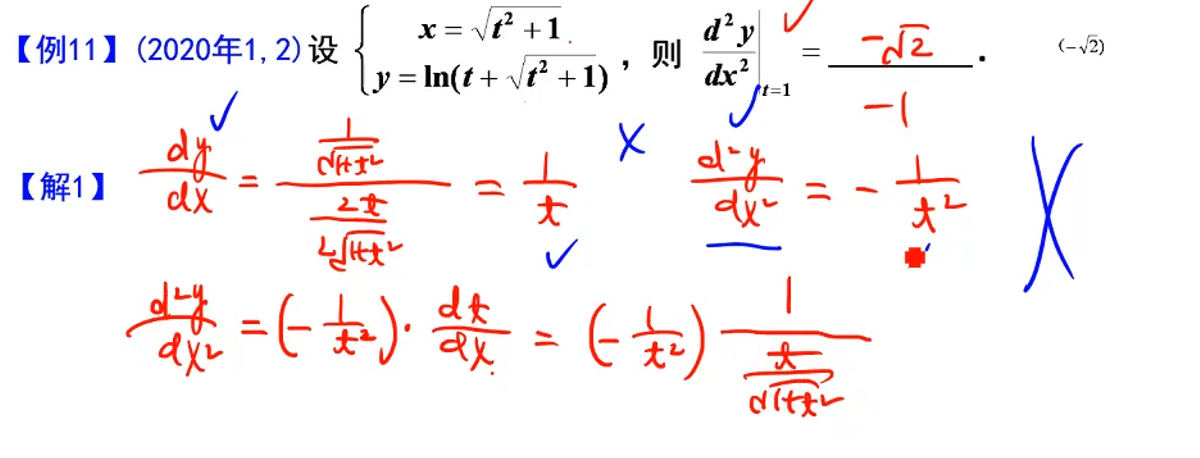 【例11】(2020年1,2)设 { x = √(t² + 1) , y = ln(t + √(t² + 1)) , 则 d²y/dx² |t=1 = -√2 . (-√2)
-1
【解1】 dy/dx = (1/√(1+t²)) / (2t/(2√(1+t²))) = 1/t ✓ ✗ d²y/dx² = - 1/t² ✗
d²y/dx² = (- 1/t²) · dt/dx = (- 1/t²) 1/(t/√(1+t²))